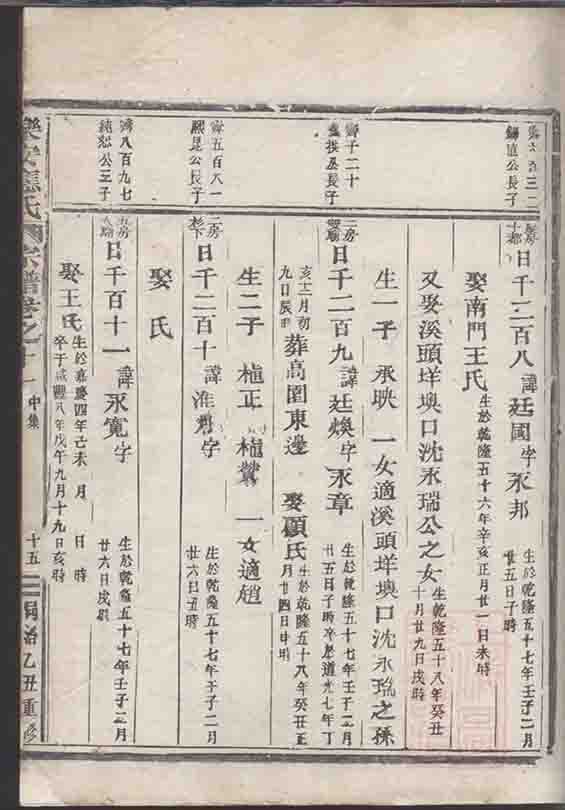 公長子
日千二百八諱廷國字永邦
生於乾隆五十七年壬子二月
廿五日子時
娶南門王氏
生於乾隆五十六年辛亥正月廿一日未時
又娶溪頭垟墺口沈永瑞公之女
生乾隆五十八年癸丑
十月廿九日戌時
生一子 承映 一女適溪頭垟墺口沈永瑞之孫
齊子二十
公長子
二房
日千二百九諱廷煥字永章
生於乾隆五十七年壬子二月
廿五日子時卒於道光七年丁
亥十二月初
九日辰時
葬高園東邊 娶顧氏
生於乾隆五十八年癸丑正
月廿四日申時
生二子 植正 植鶯 一女適趙
齊五百八一
熙昆公長子
二房
日千二百十諱淮字
生於乾隆五十七年壬子二月
廿六日丑時
娶 氏
齊八百九七
純恕公三子
房
日千百十一諱永寬字
生於乾隆五十七年壬子二月
廿六日戌時
娶王氏
生於嘉慶四年己未 月 日 時
卒于咸豐八年戊午九月十九日亥時
樂安氏宗譜卷之十一 中集 十五 同治乙丑重修